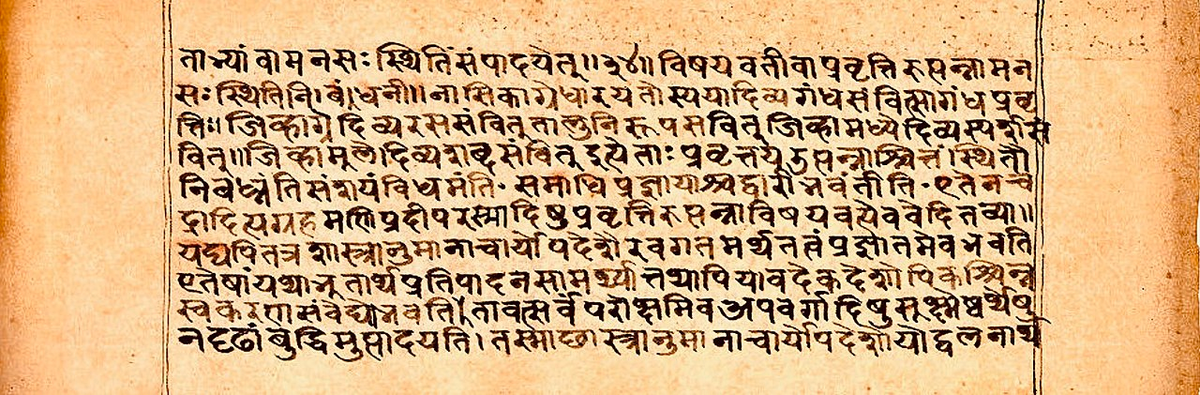 ताभ्यां वा मनसः स्थितिं संपादयेत् ॥३४॥ विषयवती वा प्रवृत्तिरुत्पन्ना मन
सः स्थितिनिबंधनी ॥ नासिकाग्रे धारयतोस्य या दिव्यगंधसंवित्सा गंधप्रवृ
त्तिः । जिव्हाग्रे दिव्यरससंवित् तालुनि रूपसंवित् जिव्हामध्ये दिव्यस्पर्शसं
वित् ॥ जिव्हामुले दिव्यशब्दसंवित् इत्येताः प्रवृत्तय उत्पन्नाश्चित्तं स्थितौ
निबध्नंति संशयं विधमंति समाधिप्रज्ञायाश्च द्वारीभवंतीति एतेन चं
द्रादित्यग्रहमणिप्रदीपरस्मादिषु प्रवृत्तिरुत्पन्ना विषयवत्येव वेदितव्या ॥
यद्यपि तत्र शास्त्रानुमानाचार्योपदेशैरवगतमर्थतत्वं प्रज्ञातमेव भवति
एतेषां यथाभूतार्थप्रतिपादनसामर्थ्यात् तथापि यावदेकदेशोपि कश्चिन्न
स्वकरणसंवेद्यो भवति तावत्सर्वं परोक्षमिव अपवर्गादिषु सुक्ष्मेष्वर्थेषु
न दृढां बुद्धिमुत्पादयति । तस्माछास्त्रानुमानाचार्योपदेशोपोद्वलनार्थ